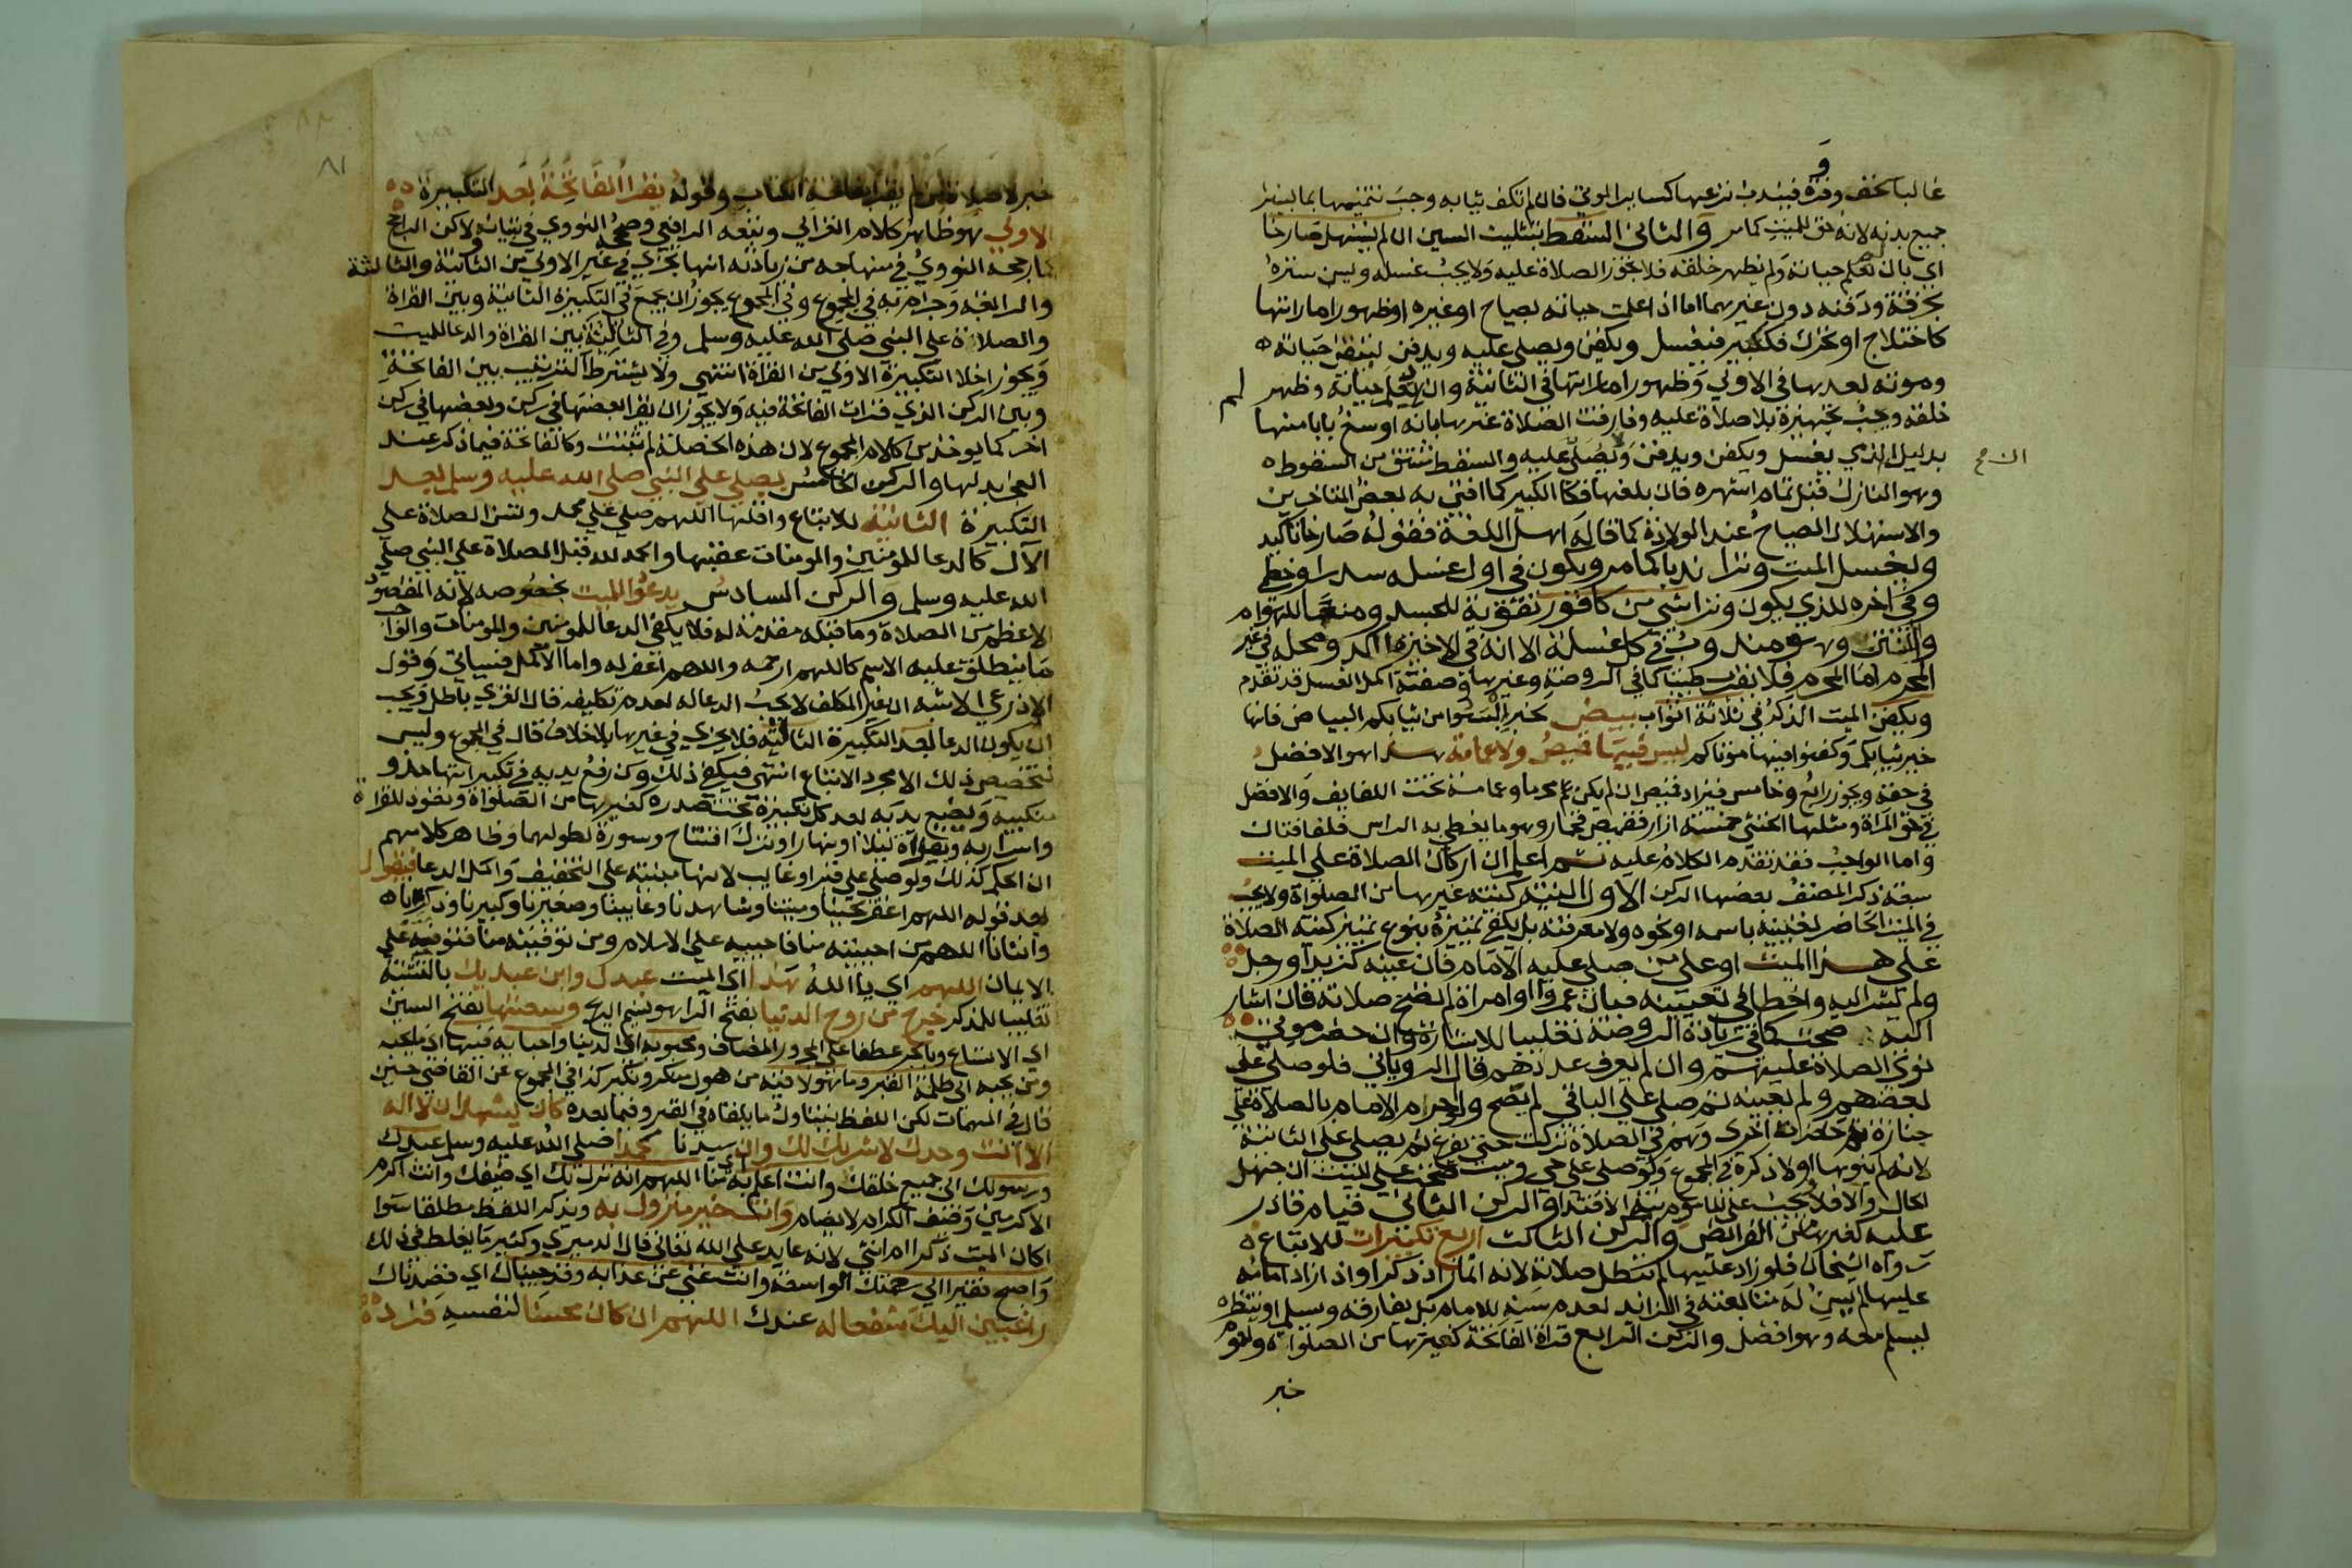 غالبا كخف وفروة فيندب نزعها كسائر الموتي فان لم تكف ثيابه وجب تتميمها بما يستر
جميع بدنه لانه حق للميت كما مر والثاني السقط بتثليث السين ان لم يستهل صارخا
اي بان لم تعلم حياته ولم يظهر خلقه فلا تجوز الصلاة عليه ولا يجب غسله ويسن ستره
بخرقة ودفنه دون غيرهما اما اذا علمت حياته بصياح او غيره او ظهور اماراتها
كاختلاج او تحرك فككبير فيغسل ويكفن ويصلي عليه ويدفن لتيقن حياته
وموته بعدها في الاولي وظهور اماراتها في الثانية وان لم تعلم حياته وظهر
خلقه وجب تجهيزه بلا صلاة عليه وفارقت الصلاة غيرها بانه اوسع بابا منها
بدليل ان الذمي يغسل ويكفن ويدفن ولا يصلي عليه والسقط مشتق من السقوط
وهو النازل قبل تمام اشهره فان بلغها فكالكبير كما افتي به بعض المتاخرين
والاستهلال الصياح عند الولادة كما قاله اهل اللغة فقوله صارخا تاكيد
ويغسل الميت وترا ندبا كما مر ويكون في اول غسله سدر او خطمي
وفي اخره للذي يكون وترا شي من كافور تقوية للجسد ومنعا للهوام
والنتن وهو مندوب في كل غسلة الا انه في الاخيرة اكد ومحله في غير
المحرم اما المحرم فلا يقرب طيبا كما في الروضة وغيرها وصفة اكمل الغسل قد تقدم
ويكفن الميت الذكر في ثلاثة اثواب بيض لخبر البسوا من ثيابكم البياض فانها
خير ثيابكم وكفنوا فيها موتاكم ليس فيها قميص ولا عمامة هذا هو الافضل
في حقه ويجوز رابع وخامس فيزاد قميص ان لم يكن محرما وعمامة تحت اللفايف والافضل
في حق المراة ومثلها الخنثي خمسة ازار فقميص فخمار وهو ما يغطي به الراس فلفافتان
واما الواجب فقد تقدم الكلام عليه ثم اعلم ان اركان الصلاة علي الميت
سبعة ذكر المصنف بعضها الركن الاول النية كنية غيرها من الصلواة ولا يجب
في الميت الحاضر تعيينه باسمه او نحوه ولا معرفته بل يكفي تمييزه بنوع تمييز كنية الصلاة
علي هذا الميت او علي من صلي عليه الامام فان عينه كزيد او رجل
ولم يشر اليه واخطا في تعيينه فبان عمروا او امراة لم تصح صلاته فان اشار
اليه صحت كما في زيادة الروضة تغليبا للاشارة وان حضر موتي
نوي الصلاة عليهم وان لم يعرف عددهم قال الروياني فلو صلي علي
بعضهم ولم يعينه ثم صلي علي الباقي لم يصح ولو احرم الامام بالصلاة علي
جنازة ثم حضرت اخري وهم في الصلاة تركت حتي يفرغ ثم يصلي علي الثانية
لانه لم ينوها اولا ذكره في المجموع ولو صلي علي حي وميت صحت علي الميت ان جهل
الحال والا فلا ويجب علي الماموم نية الاقتدا والركن الثاني قيام قادر
عليه كغيرها من الفرائض والركن الثالث اربع تكبيرات للاتباع
رواه الشيخان فلو زاد عليها لم تبطل صلاته لانه انما زاد ذكرا واذا زاد امامه
عليها لم يسن له متابعته في الزائد لعدم سنه للامام بل يفارقه ويسلم او ينتظره
ليسلم معه وهو افضل والركن الرابع قراة الفاتحة كغيرها من الصلواة ولعموم
خبر
لم
ان صح
٨١
خبر لا صلاة لمن لم يقرا بفاتحة الكتاب وقوله يقرا الفاتحة بعد التكبيرة
الاولي هو ظاهر كلام الغزالي وتبعه الرافعي وصححه النووي في تبيانه ولاكن الراجح
ما رجحه النووي في منهاجه من زيادته انها تجزي في غير الاولي من الثانية والثالثة
والرابعة وجزم به في المجموع وفي المجموع يجوز ان يجمع في التكبيرة الثانية وبين القراة
والصلاة علي النبي صلي الله عليه وسلم وفي الثالثة بين القراة والدعا للميت
ويجوز اخلا التكبيرة الاولي من القراة انتهي ولا يشترط الترتيب بين الفاتحة
وبين الركن الذي قرات الفاتحة فيه ولا يجوز ان يقرا بعضها في ركن وبعضها في ركن
اخر كما يوخذ من كلام المجموع لان هذه الخصلة لم تثبت وكالفاتحة فيما ذكر عند
العجز بدلها والركن الخامس يصلي علي النبي صلي الله عليه وسلم بعد
التكبيرة الثانية للاتباع واقلها اللهم صلي علي محمد وتسن الصلاة علي
الآل كالدعا للمومنين والمومنات عقبها والحمد لله قبل الصلاة علي النبي صلي
الله عليه وسلم والركن السادس يدعو للميت بخصوصه لانه المقصود
الاعظم من الصلاة وما قبله مقدمة له فلا يكفي الدعا للمومنين والمومنات والواجب
ما ينطلق عليه الاسم كاللهم ارحمه واللهم اغفر له واما الاكمل فسياتي وقول
الاذرعي الاشبه ان غير المكلف لا يجب الدعا له لعدم تكليفه قال الغزي باطل ويجب
ان يكون الدعا بعد التكبيرة الثالثة فلا يجزي في غيرها بلا خلاف قال في المجموع وليس
لتخصيص ذلك الا مجرد الاتباع انتهي فيكفي ذلك وكن رفع يديه في تكبيراتها حذو
منكبيه ويضع يديه بعد كل تكبيرة تحت صدره كغيرها من الصلواة وتعوذ للقراة
واسرار به وبقراة ليلا او نهارا وترك افتتاح وسورة لطولهما وظاهر كلامهم
ان الحكم كذلك ولو صلي علي قبر او غايب لانها مبنية علي التخفيف واكمل الدعا فيقول
بعد قوله اللهم اغفر لحينا وميتنا وشاهدنا وغايبنا وصغيرنا وكبيرنا وذكرنا
وانثانا اللهم من احييته منا فاحييه علي الاسلام ومن توفيته منا فتوفيه علي
الايمان اللهم اي يا الله هذا اي الميت عبدك وابن عبديك بالتثنية
تغليبا للمذكر خرج من روح الدنيا بفتح الرا هو نسيم الريح وسعتها بفتح السين
اي الاتساع وبالجر عطفا علي المجرور المضاف ومحبوبه اي الدنيا واحبابه فيها اي ما يحبه
ومن يحبه الي ظلمة القبر وما هو لاقيه من هول منكر ونكير كذا في المجموع عن القاضي حسين
قال في المهمات لكن اللفظ يتناول ما يلقاه في القبر وفيما بعده كان يشهد ان لا اله
الا انت وحدك لا شريك لك وان سيدنا محمدا صلي الله عليه وسلم عبدك
ورسولك الي جميع خلقك وانت اعلم به منا اللهم انه نزل بك اي ضيفك وانت اكرم
الاكرمين وضيف الكرام لا يضام وانت خير منزول به ويذكر اللفظ مطلقا سوا
اكان الميت ذكرا ام انثي لانه عايد علي الله تعالي قال الدميري وكثير ما يغلط في ذلك
واصبح فقيرا الي رحمتك الواسعة وانت غني عن عذابه وقد جيناك اي قصدناك
راغبين اليك شفعا له عندك اللهم ان كان محسنا لنفسه فزد